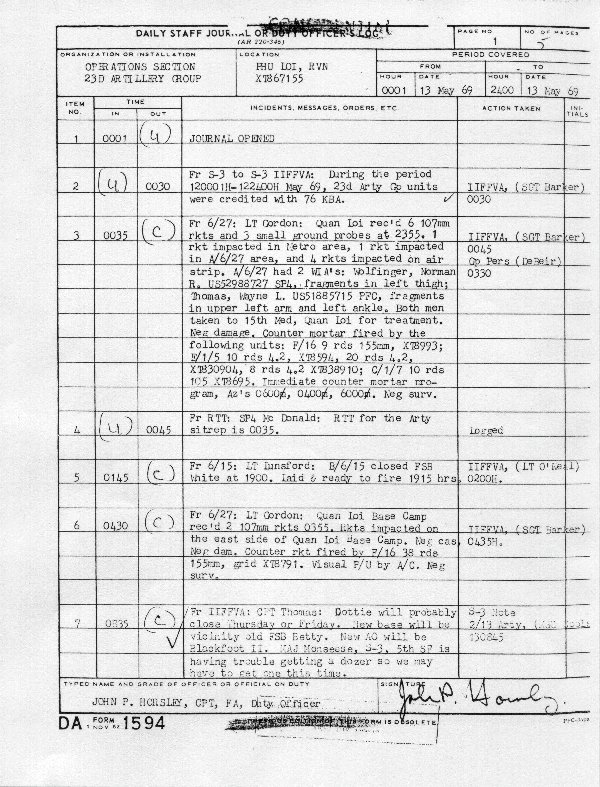 DAILY STAFF JOURNAL OR DUTY OFFICER'S LOG
(AR 220-346)
PAGE NO
1
NO OF PAGES
5
ORGANIZATION OR INSTALLATION
OPERATIONS SECTION
23D ARTILLERY GROUP
LOCATION
PHU LOI, RVN
XT867155
PERIOD COVERED
FROM
TO
HOUR
DATE
HOUR
DATE
0001
13 May 69
2400
13 May 69
ITEM NO.
TIME
IN
OUT
INCIDENTS, MESSAGES, ORDERS, ETC
ACTION TAKEN
INITIALS
1
0001
(U)
JOURNAL OPENED
2
(U)
0030
Fr S-3 to S-3 IIFFVA: During the period
120001H-122400H May 69, 23d Arty Gp units
were credited with 76 KBA.
IIFFVA, (SGT Barker)
0030
3
0035
(C)
Fr 6/27: LT Gordon: Quan Loi rec'd 6 107mm
rkts and 3 small ground probes at 2355. 1
rkt impacted in Metro area, 1 rkt impacted
in A/6/27 area, and 4 rkts impacted on air
strip. A/6/27 had 2 WIA's: Wolfinger, Norman
R. US52988727 SP4, fragments in left thigh;
Thomas, Wayne L. US51885715 PFC, fragments
in upper left arm and left ankle. Both men
taken to 15th Med, Quan Loi for treatment.
Neg damage. Counter mortar fired by the
following units: F/16 9 rds 155mm, XT8993;
E/1/5 10 rds 4.2, XT8594, 20 rds 4.2,
XT830904, 8 rds 4.2 XT838910; C/1/7 10 rds
105 XT8695. Immediate counter mortar pro-
gram, Az's 0600m, 0400m, 6000m. Neg surv.
IIFFVA, (SGT Barker)
0045
Gp Pers (DeBeir)
0330
4
(U)
0045
Fr RTT: SP4 Mc Donald: RTT for the Arty
sitrep is 0035.
Logged
5
0145
(C)
Fr 6/15: LT Lunsford: B/6/15 closed FSB
White at 1900. Laid & ready to fire 1915 hrs.
IIFFVA, (LT O'Neal)
0200H.
6
0430
(C)
Fr 6/27: LT Gordon: Quan Loi Base Camp
rec'd 2 107mm rkts 0355. Rkts impacted on
the east side of Quan Loi Base Camp. Neg cas,
Neg dam. Counter rkt fired by F/16 38 rds
155mm, grid XT8791. Visual P/U by A/C. Neg
surv.
IIFFVA, (SGT Barker)
0435H.
7
0835
(C)
Fr IIFFVA: CPT Thomas: Dottie will probably
close Thursday or Friday. New base will be
vicinity old FSB Betty. New AO will be
Blackfoot II. MAJ Monseese, S-3, 5th SF is
having trouble getting a dozer so we may
have to get one this time.
S-3 Note
2/13 Arty,
130845
TYPED NAME AND GRADE OF OFFICER OR OFFICIAL ON DUTY
JOHN P. HORSLEY, CPT, FA, Duty Officer
SIGNATURE
John P. Horsley
DA FORM 1594
1 NOV 62
FORM IS OBSOLETE